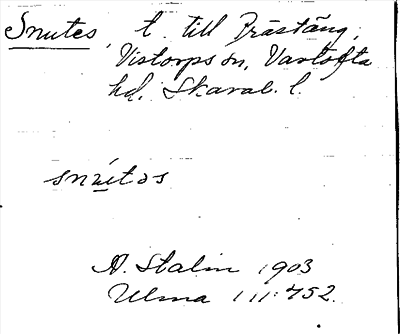 Snutes, t. till Prästäng,
Vistorps sn, Vartofta
hd, Skarab. l.
snu̱təs
A. Stalin 1903
Ulma 111:452.